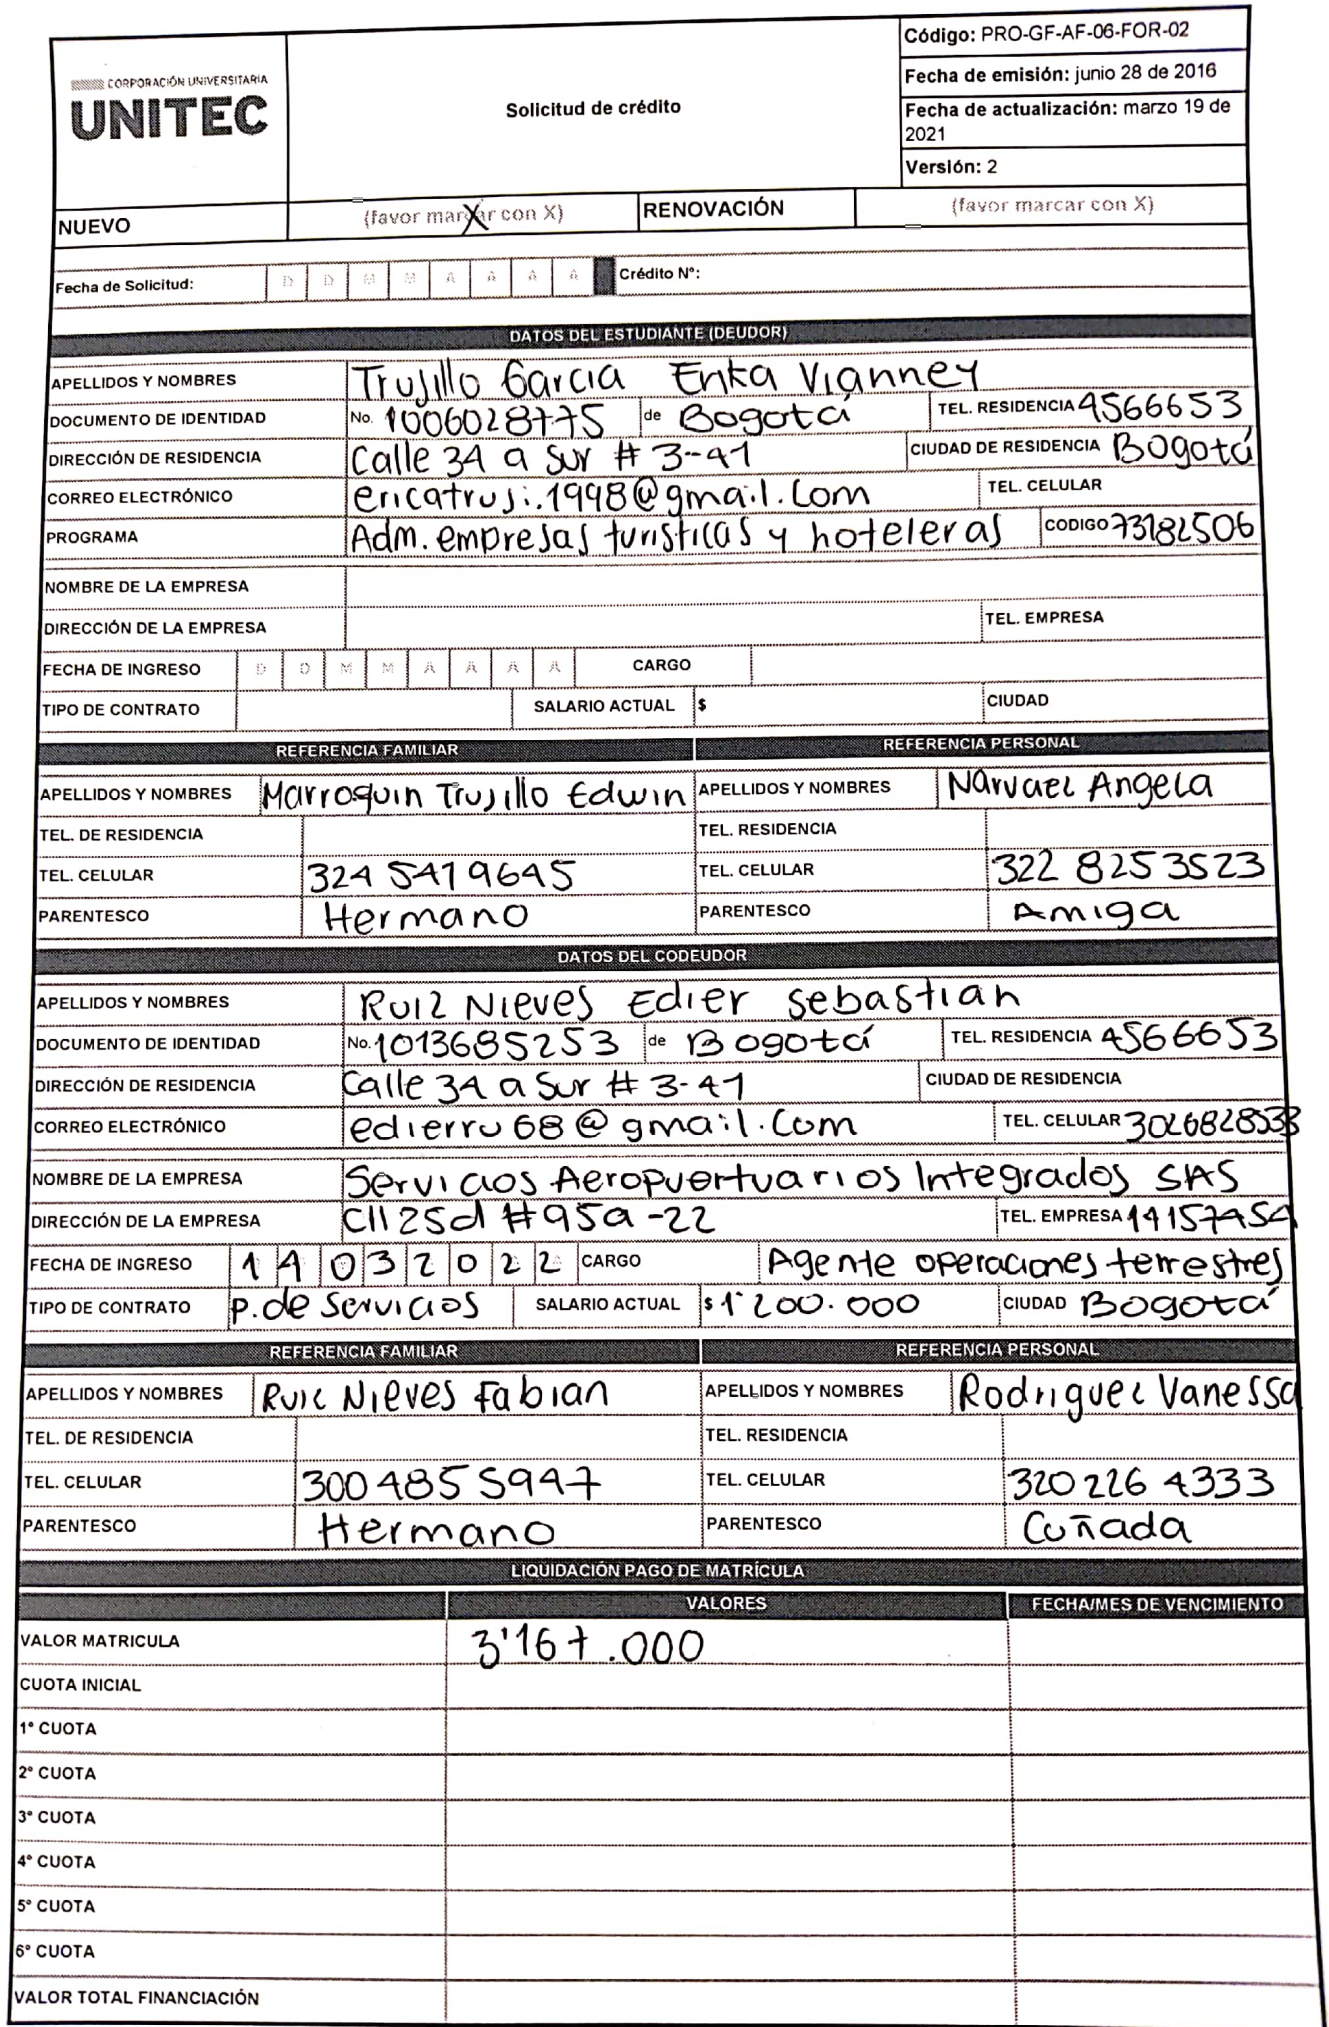 CORPORACIÓN UNIVERSITARIA
UNITEC
Solicitud de crédito
Código: PRO-GF-AF-06-FOR-02
Fecha de emisión: junio 28 de 2016
Fecha de actualización: marzo 19 de
2021
Versión: 2
NUEVO (favor marcar con X) X RENOVACIÓN (favor marcar con X)
Fecha de Solicitud: D D M M A A A A Crédito N°:
DATOS DEL ESTUDIANTE (DEUDOR)
APELLIDOS Y NOMBRES Trujillo Garcia Erika Vianney
DOCUMENTO DE IDENTIDAD No. 1006028775 de Bogotá TEL. RESIDENCIA 4566653
DIRECCIÓN DE RESIDENCIA Calle 34 a Sur # 3-41 CIUDAD DE RESIDENCIA Bogotá
CORREO ELECTRÓNICO ericatruji.1998@gmail.Com TEL. CELULAR
PROGRAMA Adm. empresas turisticas y hoteleras CODIGO 73182506
NOMBRE DE LA EMPRESA
DIRECCIÓN DE LA EMPRESA TEL. EMPRESA
FECHA DE INGRESO D D M M A A A A CARGO
TIPO DE CONTRATO SALARIO ACTUAL $ CIUDAD
REFERENCIA FAMILIAR REFERENCIA PERSONAL
APELLIDOS Y NOMBRES Marroquin Trujillo Edwin APELLIDOS Y NOMBRES Narvaez Angela
TEL. DE RESIDENCIA TEL. RESIDENCIA
TEL. CELULAR 324 5419645 TEL. CELULAR 322 8253523
PARENTESCO Hermano PARENTESCO Amiga
DATOS DEL CODEUDOR
APELLIDOS Y NOMBRES Ruiz Nieves Edier Sebastian
DOCUMENTO DE IDENTIDAD No. 1013685253 de Bogotá TEL. RESIDENCIA 4566653
DIRECCIÓN DE RESIDENCIA Calle 34 a Sur # 3-41 CIUDAD DE RESIDENCIA
CORREO ELECTRÓNICO edierru68@gmail.Com TEL. CELULAR 3026828533
NOMBRE DE LA EMPRESA Servicios Aeropuertuarios Integrados SAS
DIRECCIÓN DE LA EMPRESA Cll 25d #95a-22 TEL. EMPRESA 14157454
FECHA DE INGRESO 1 4 0 3 2 0 2 2 CARGO Agente operaciones terrestres
TIPO DE CONTRATO P. de Servicios SALARIO ACTUAL $ 1'200.000 CIUDAD Bogotá
REFERENCIA FAMILIAR REFERENCIA PERSONAL
APELLIDOS Y NOMBRES Ruiz Nieves Fabian APELLIDOS Y NOMBRES Rodriguez Vanessa
TEL. DE RESIDENCIA TEL. RESIDENCIA
TEL. CELULAR 300 485 5947 TEL. CELULAR 320 226 4333
PARENTESCO Hermano PARENTESCO Cuñada
LIQUIDACIÓN PAGO DE MATRÍCULA
VALORES FECHA/MES DE VENCIMIENTO
VALOR MATRICULA 3'167.000
CUOTA INICIAL
1° CUOTA
2° CUOTA
3° CUOTA
4° CUOTA
5° CUOTA
6° CUOTA
VALOR TOTAL FINANCIACIÓN